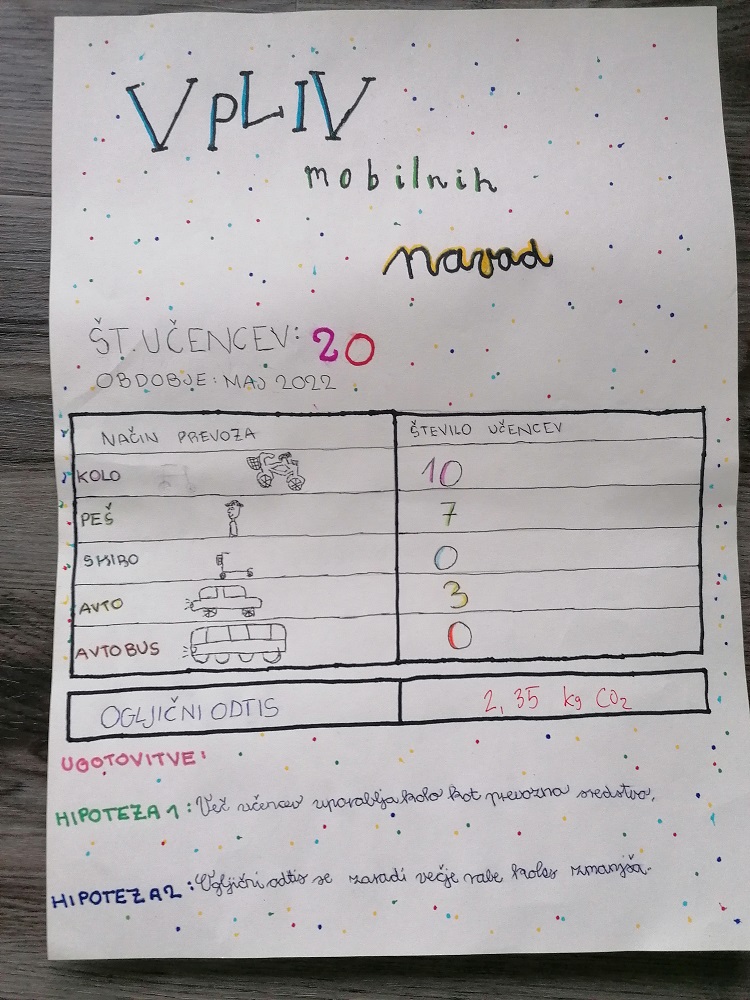 VPLIV
mobilnih
navad
ŠT. UČENCEV: 20
OBDOBJE: MAJ 2022
NAČIN PREVOZA ŠTEVILO UČENCEV
KOLO 10
PEŠ 7
SKIRO 0
AVTO 3
AVTOBUS 0
OGLJIČNI ODTIS 2,35 kg CO2
UGOTOVITVE:
HIPOTEZA 1: Več učencev uporablja kolo kot prevozna sredstvo.
HIPOTEZA 2: Ogljični odtis se zaradi večje rabe koles zmanjša.